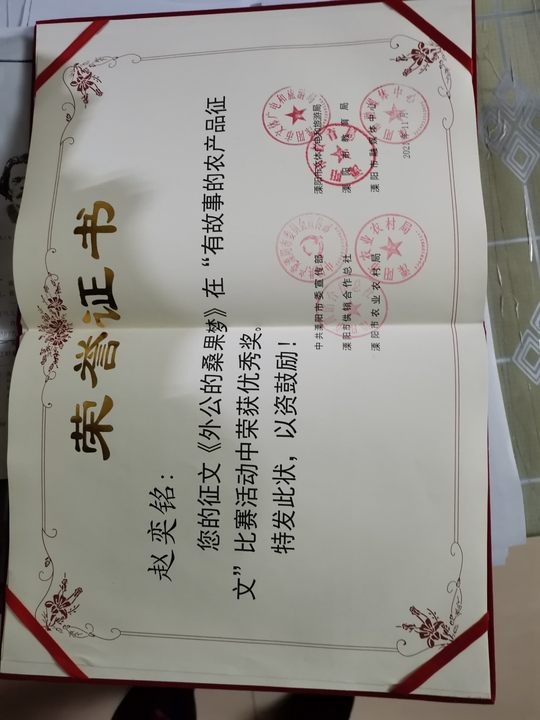 荣誉证书
赵奕铭：
您的征文《外公的桑果梦》在“有故事的农产品征
文”比赛活动中荣获优秀奖。
特发此状，以资鼓励！
中共溧阳市委宣传部
溧阳市文体广电和旅游局
溧阳市供销合作总社
溧阳市教育局
溧阳市农业农村局
溧阳市融媒体中心